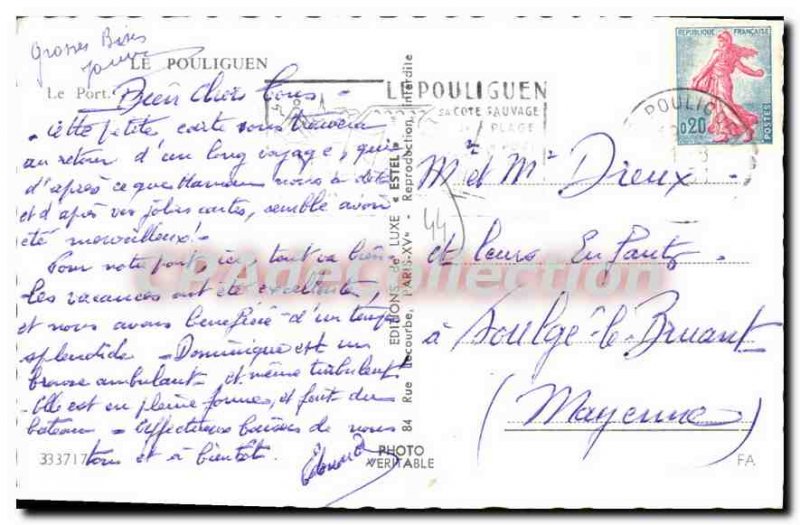 Grosses Bises
LE POULIGUEN
Le Port.
Bien chers tous
- Cette petite carte vous trouvera
au retour d'un long voyage, qui
d'après ce que Maman nous a dit
et d'après vos jolies cartes, semble avoir
été merveilleux!
Pour notre part ici, tout va bien
Les vacances ont été excellentes,
et nous avons bénéficié d'un temps
splendide - Dominique est un
brave ambulant et même turbulent
- Elle est en pleine formes, et fait du
bateau - Affectueux baisers de nous
tous et à bientôt.
333717
EDITIONS de LUXE « ESTEL » - Reproduction interdite
84 Rue Lecourbe, PARIS-XV°
PHOTO
VERITABLE
LE POULIGUEN
SA COTE SAUVAGE
PLAGE
POULIG
REPUBLIQUE FRANÇAISE
0,20
POSTES
44
Mr et Mme Dreux
et leurs Enfants
à Soulgé-le-Bruant
(Mayenne)
FA
CPAdeCollection